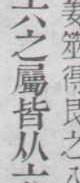 姜筮得艮之八
六之屬皆从